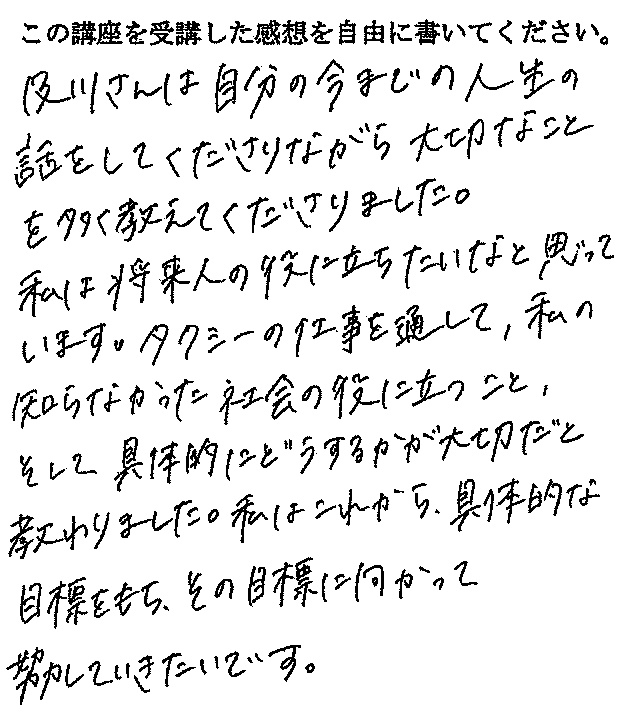 この講座を受講した感想を自由に書いてください。
及川さんは自分の今までの人生の
話をしてくださりながら大切なこと
を多く教えてくださりました。
私は将来人の役に立ちたいなと思って
います。タクシーの仕事を通して,私の
知らなかった社会の役に立つこと,
そして具体的にどうするかが大切だと
教わりました。私はこれから、具体的な
目標をもち、その目標に向かって
努力していきたいです。